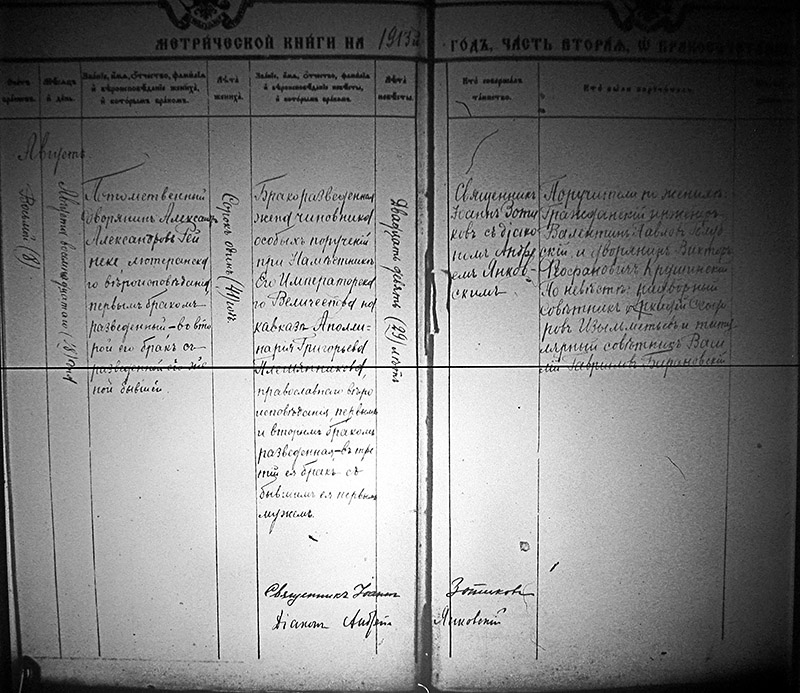 МЕТРИЧЕСКОЙ КНИГИ НА 1913й ГОДЪ, ЧАСТЬ ВТОРАЯ, О БРАКОСОЧЕТАВШИ
Счетъ браковъ.
Мѣсяцъ и день.
Званіе, имя, отчество, фамилія
и вѣроисповѣданіе жениха,
и которымъ бракомъ.
Лѣта
жениха.
Званіе, имя, отчество, фамилія
и вѣроисповѣданіе невѣсты,
и которымъ бракомъ.
Лѣта
невѣсты.
Кто совершалъ
таинство.
Кто были поручители.
Августъ.
Восьмой (8)
Августа восемнадцатаго (18) дня
Потомственный
дворянинъ Александръ
Александровъ Рей
неке лютеранска
го вѣроисповѣданія
первымъ бракомъ
разведенный – во вто
рой его бракъ съ
разведенной его же
ной бывшей.
Сорокъ одинъ (41) годъ.
Бракоразведенная
жена чиновника
особыхъ порученій
при Намѣстникѣ
Его Императорска
го Величества на
Кавказѣ Аполли-
нарія Григорьева
Племянникова,
православнаго вѣро
исповѣданія, первымъ
и вторымъ бракомъ
разведенная – въ тре
тій ея бракъ съ
бывшимъ ея первымъ
мужемъ.
Двадцать девять (29) лѣтъ
Священникъ
Іоаннъ Зоти
ковъ съ діако
номъ Андре
емъ Янков
скимъ
Поручители по женихѣ:
Гражданскій инженеръ
Валентинъ Павловъ
скій и дворянинъ Викторъ
Крушинскій
По невѣстѣ: надворный
совѣтникъ
ровъ и титу
лярный совѣтникъ Васи
лій Гавриловъ Барановскій
Священникъ Іоаннъ Зотиковъ
Діаконъ Андрей Янковскій